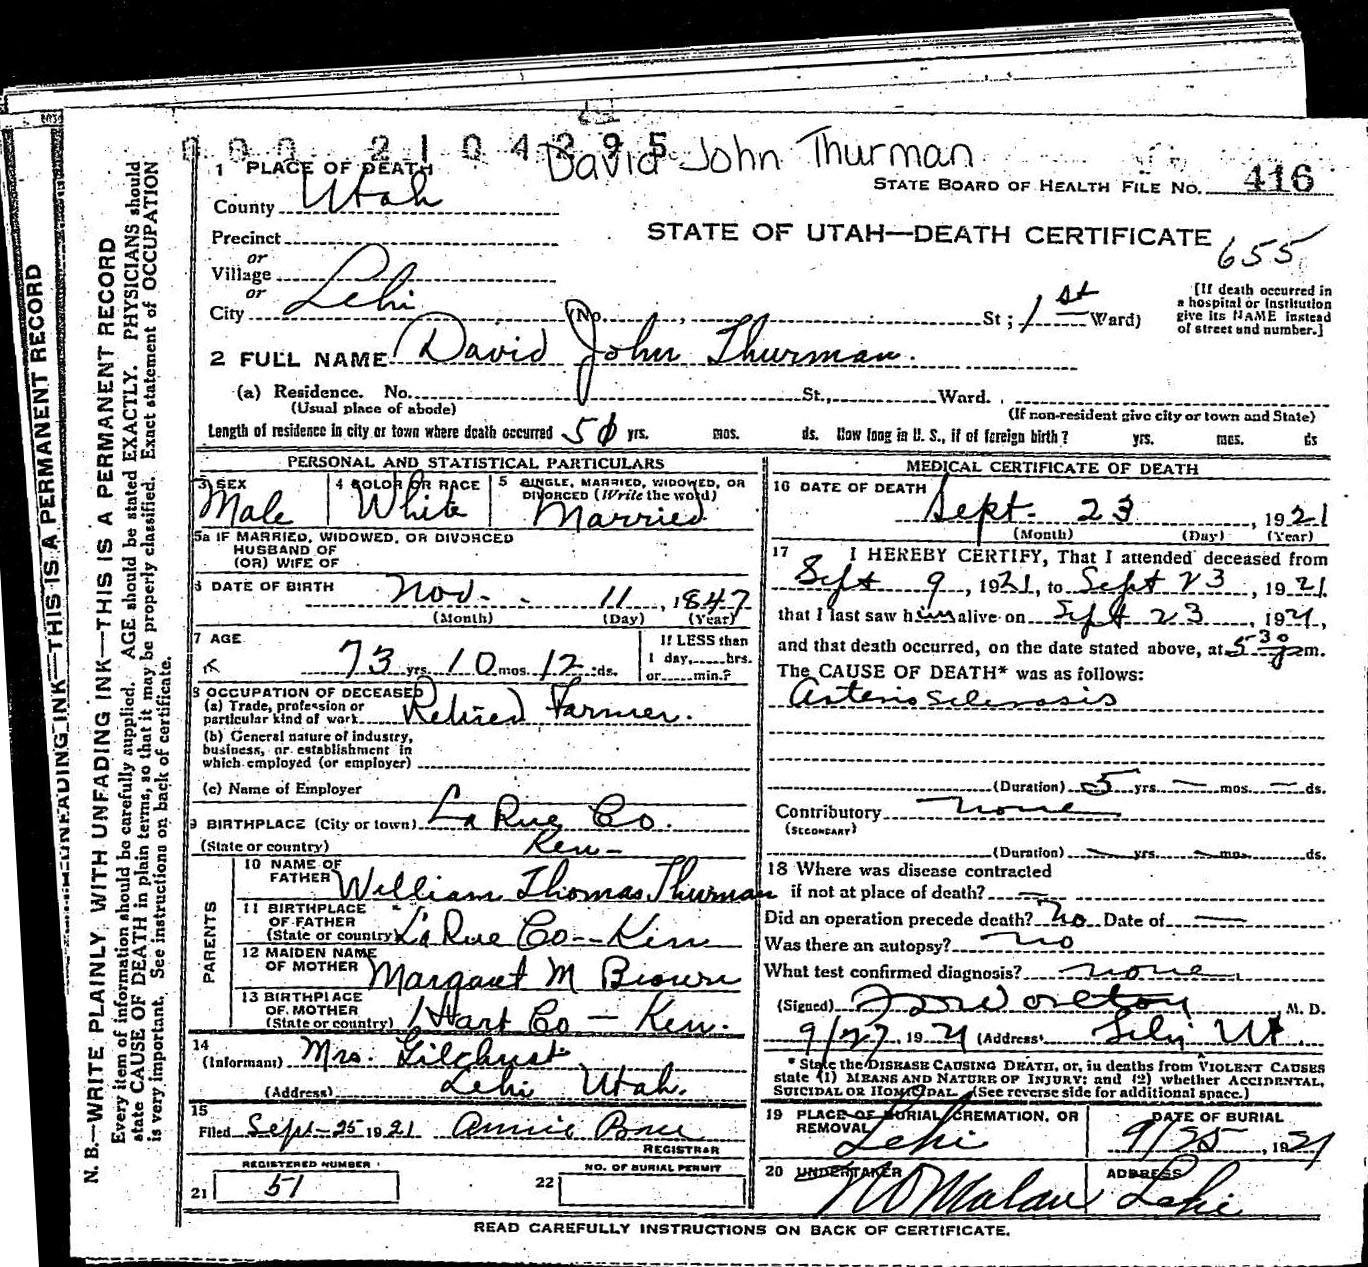 000 2104295
David John Thurman
1 PLACE OF DEATH
STATE BOARD OF HEALTH FILE NO. 416
County Utah
STATE OF UTAH—DEATH CERTIFICATE
655
Precinct
or
Village
or
City Lehi (No. St; 1st Ward)
[If death occurred in
a hospital or institution
give its NAME instead
of street and number.]
2 FULL NAME David John Thurman.
(a) Residence. No. St., Ward.
(Usual place of abode)
(If non-resident give city or town and State)
Length of residence in city or town where death occurred 50 yrs. mos. ds. How long in U. S., if of foreign birth? yrs. mos. ds
PERSONAL AND STATISTICAL PARTICULARS
3 SEX
Male
4 COLOR OR RACE
White
5 SINGLE, MARRIED, WIDOWED, OR
DIVORCED (Write the word)
Married
5a IF MARRIED, WIDOWED, OR DIVORCED
HUSBAND OF
(OR) WIFE OF
6 DATE OF BIRTH Nov. 11, 1847
(Month) (Day) (Year)
7 AGE
73 yrs. 10 mos. 12 ds.
If LESS than
1 day, hrs.
or min.?
8 OCCUPATION OF DECEASED
(a) Trade, profession or
particular kind of work Retired Farmer.
(b) General nature of industry,
business, or establishment in
which employed (or employer)
(c) Name of Employer
9 BIRTHPLACE (City or town) La Rue Co.
(State or country) Ken-
PARENTS
10 NAME OF
FATHER William Thomas Thurman
11 BIRTHPLACE
OF FATHER
(State or country) La Rue Co-- Ken
12 MAIDEN NAME
OF MOTHER Margaret M Brown
13 BIRTHPLACE
OF MOTHER
(State or country) Hart Co — Ken.
14
(Informant) Mrs. Gilchrist
(Address) Lehi Utah.
15
Filed Sept-25 1921 Annie
REGISTRAR
REGISTERED NUMBER
21 51
NO. OF BURIAL PERMIT
22
MEDICAL CERTIFICATE OF DEATH
16 DATE OF DEATH
Sept. 23, 1921
(Month) (Day) (Year)
17 I HEREBY CERTIFY, That I attended deceased from
Sept 9, 1921, to Sept 23, 1921
that I last saw him alive on Sept 23, 1921,
and that death occurred, on the date stated above, at 5 30 m.
The CAUSE OF DEATH* was as follows:
Arterio sclerosis
(Duration) 5 yrs. — mos. — ds.
Contributory none
(SECONDARY)
(Duration) yrs. mos. ds.
18 Where was disease contracted
if not at place of death? —
Did an operation precede death? No Date of —
Was there an autopsy? no
What test confirmed diagnosis? none
(Signed) Worlton M. D.
9/27, 1921 (Address) Lehi Ut.
* State the DISEASE CAUSING DEATH, or, in deaths from VIOLENT CAUSES
state (1) MEANS AND NATURE OF INJURY; and (2) whether ACCIDENTAL,
SUICIDAL OR HOMICIDAL. (See reverse side for additional space.)
19 PLACE OF BURIAL, CREMATION, OR
REMOVAL Lehi
DATE OF BURIAL
9/25, 1921
20 UNDERTAKER
ADDRESS
Lehi
READ CAREFULLY INSTRUCTIONS ON BACK OF CERTIFICATE.
N. B.—WRITE PLAINLY, WITH UNFADING INK—THIS IS A PERMANENT RECORD
Every item of information should be carefully supplied. AGE should be stated EXACTLY. PHYSICIANS should
state CAUSE OF DEATH in plain terms, so that it may be properly classified. Exact statement of OCCUPATION
is very important. See instructions on back of certificate.
UNFADING INK—THIS IS A PERMANENT RECORD